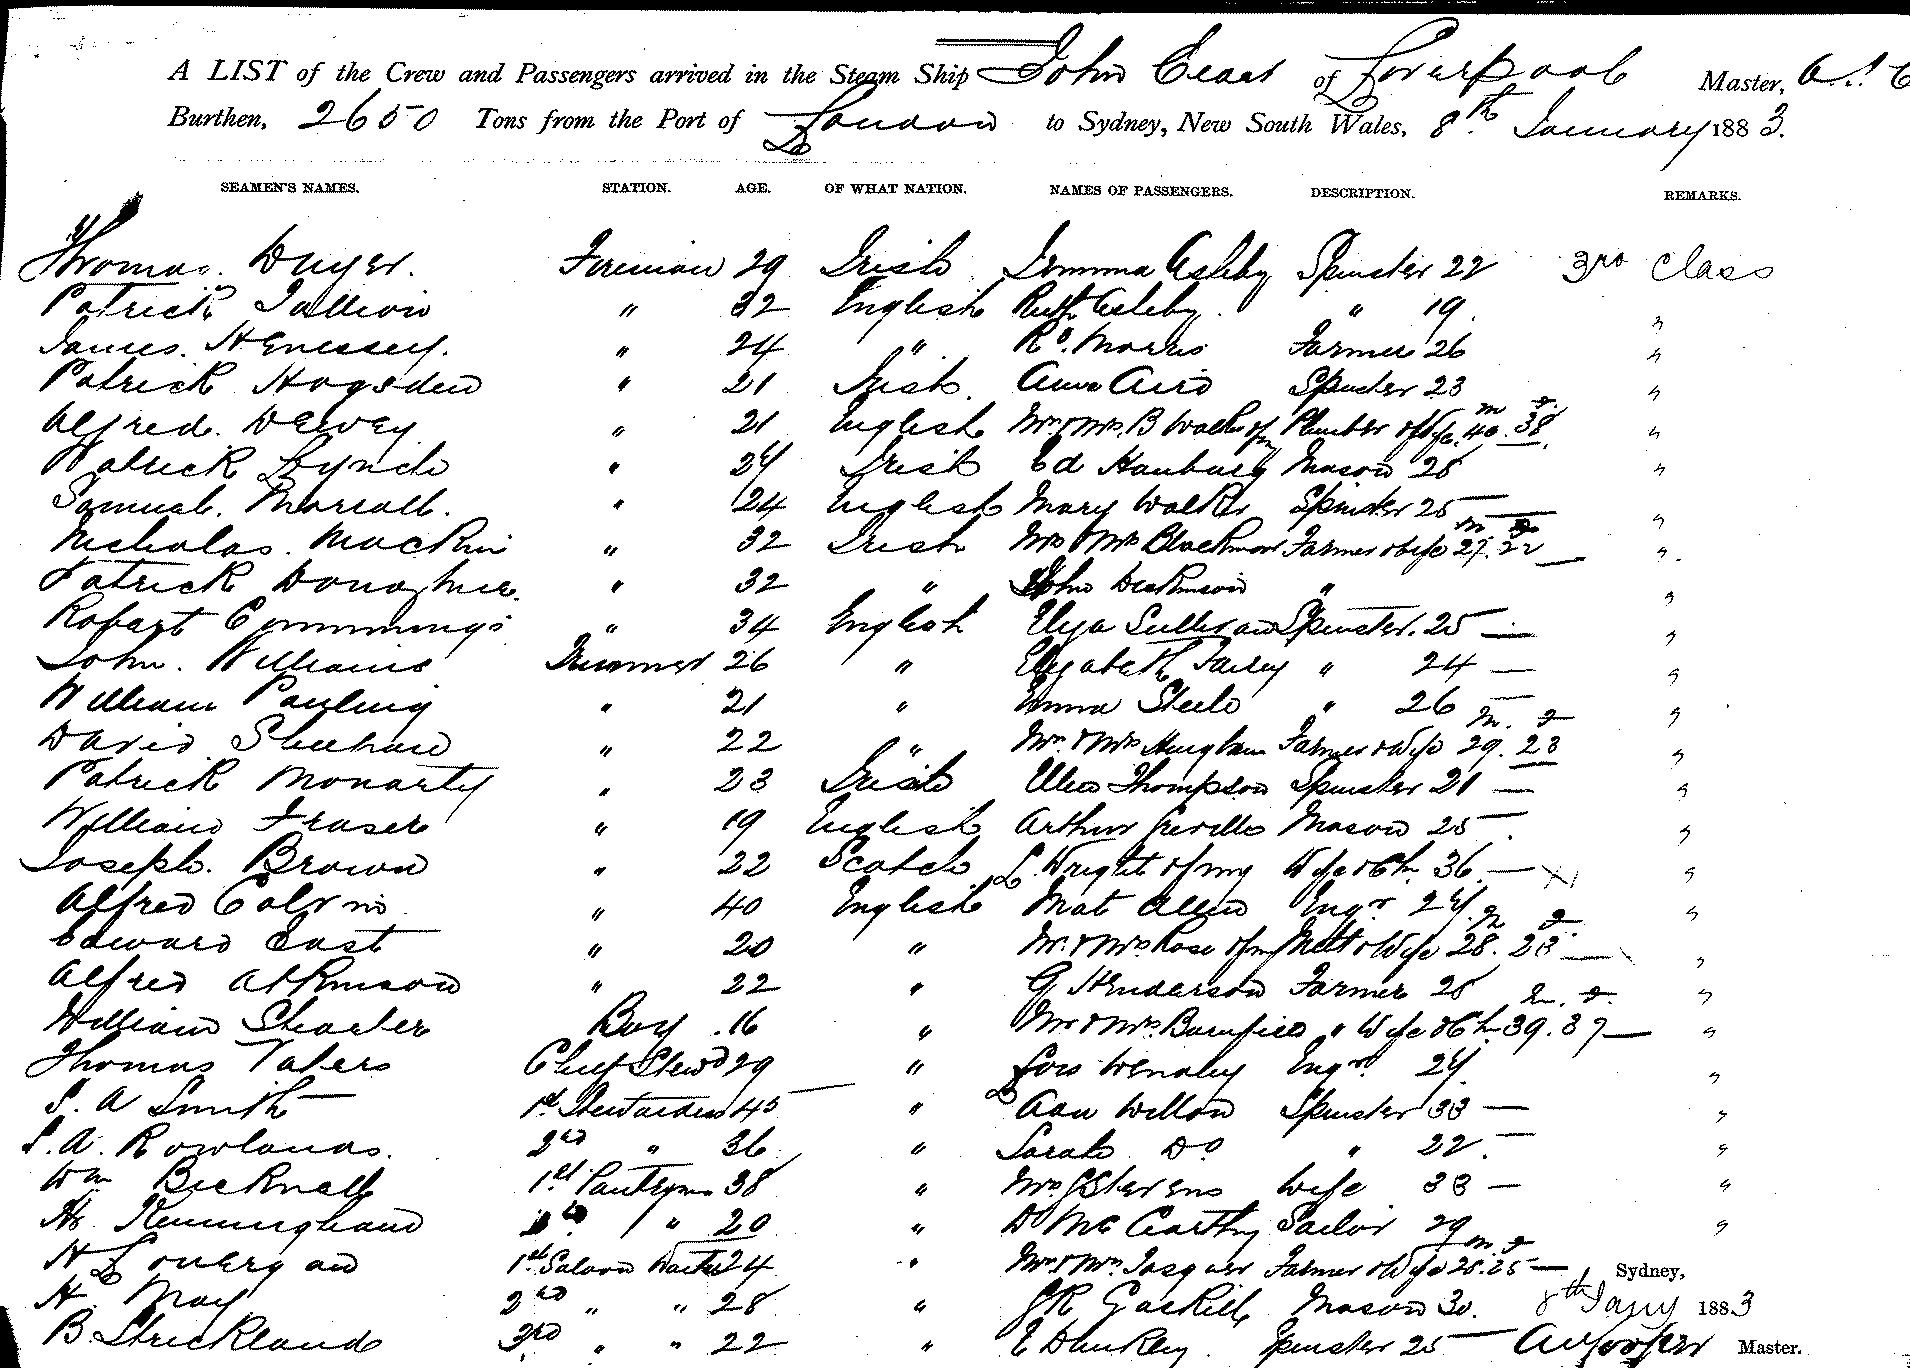 A LIST of the Crew and Passengers arrived in the Steam Ship John of Liverpool Master, A.
Burthen, 2650 Tons from the Port of London to Sydney, New South Wales, 8th January 1883.
SEAMEN'S NAMES. STATION. AGE. OF WHAT NATION. NAMES OF PASSENGERS. DESCRIPTION. REMARKS.
Thomas Dwyer. Fireman 29 Irish Ashby Spinster 22 3rd Class
Patrick " 32 English Ruth Ashby. " 19. "
James. Henessey. " 24 " Rd. Morris Farmer 26 "
Patrick Hogsden " 21 Irish. Aird Spinster 23 "
Alfred. Dewey " 21 English Mr & Mrs. B Plumber & Wife. M 40. F 38. "
Patrick Lynch " 24 Irish Ed Hanbury Mason 25 "
Samuel. " 24 English Mary Walker Spinster 25 — "
Nicholas. Mackin " 32 Irish Mr & Mrs Blackmore Farmer & Wife M 27. F 22 — "
Patrick " 32 " John Dickinson " "
Robart Cummings " 34 English Eliza Sullivan Spinster. 25 — "
John. Williams Trimmer 26 " Elizabeth " 24 — "
William Pauling " 21 " Emma Steele " 26 — "
David Sheehan " 22 " Mr. & Mrs Farmer & Wife M. 29. F 23 "
Patrick Monarty " 23 Irish Ellen Thompson Spinster 21 — "
William Fraser " 19 English Arthur Greville Mason 25 — "
Joseph. Brown " 22 Scotch L. Wright & fmy Wife & Ch. 36. — "
Alfred Colvin " 40 English Mat Allen Engr 24 "
Edward East " 20 " Mr. & Mrs Rose & fmy & Wife M 28. F 23 — "
Alfred Atkinson " 22 " G Henderson Farmer 25 "
William " Boy .16 " Mr & Mrs. " Wife & Ch M 39. F 37 — "
Thomas Chief Stewd 29 " Engr. 24 "
S. A Smith 1st Stewardess 45 " Ada Spinster 33 — "
S. A. Rowlands. 2nd " 36 " Sarah Do " 22 — "
Wm Bicknell 1st Pantryman 38 " Mrs. Stevens Wife 33 — "
Hr. Kenningham 2nd " 20 " D McCarthy Sailor 29 "
H Lonergan 1st Saloon Waiter 24 " Mr. & Mrs. Farmer & Wife M 25. F 25 — Sydney,
H. May 2nd " " 28 " J R Gaskill Mason 30. 8th Jany 1883
B. Strickland 3rd " " 22 " E Dunkley. Spinster 25 — Master.